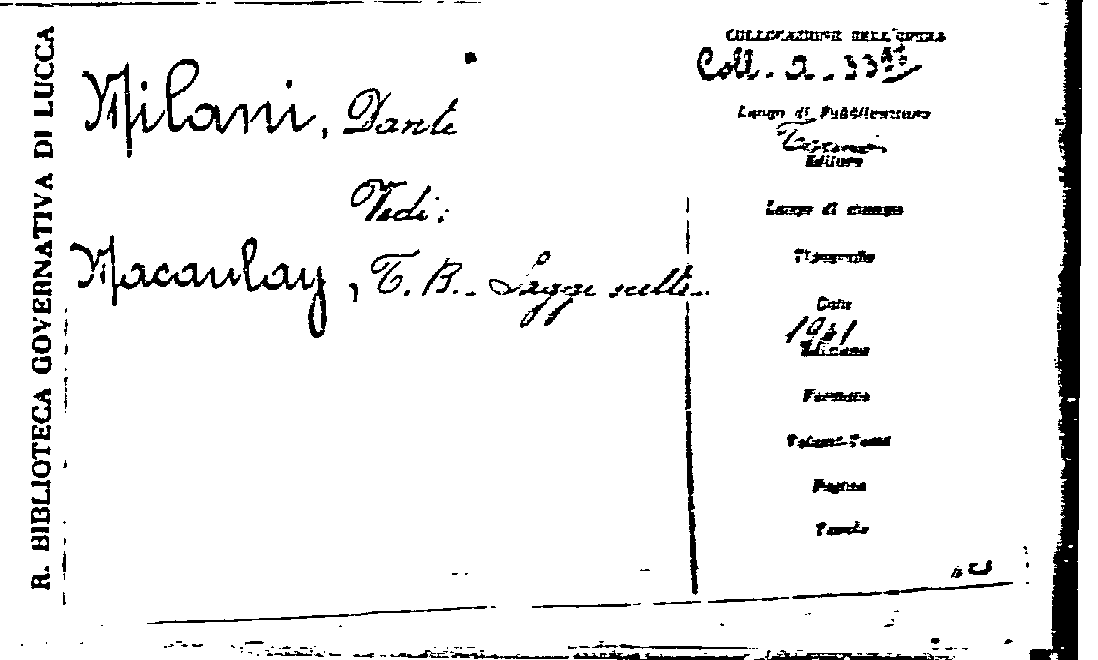 R. BIBLIOTECA GOVERNATIVA DI LUCCA
Milani, Dante
Vedi:
Macaulay, T. B. - Saggi scelti -
COLLOCAZIONE DELL'OPERA
Coll. 2. 33
Luogo di Pubblicazione
Editore
Luogo di stampa
Tipografia
Data
Edizione
Formato
Volumi-Tomi
Pagine
Tavole